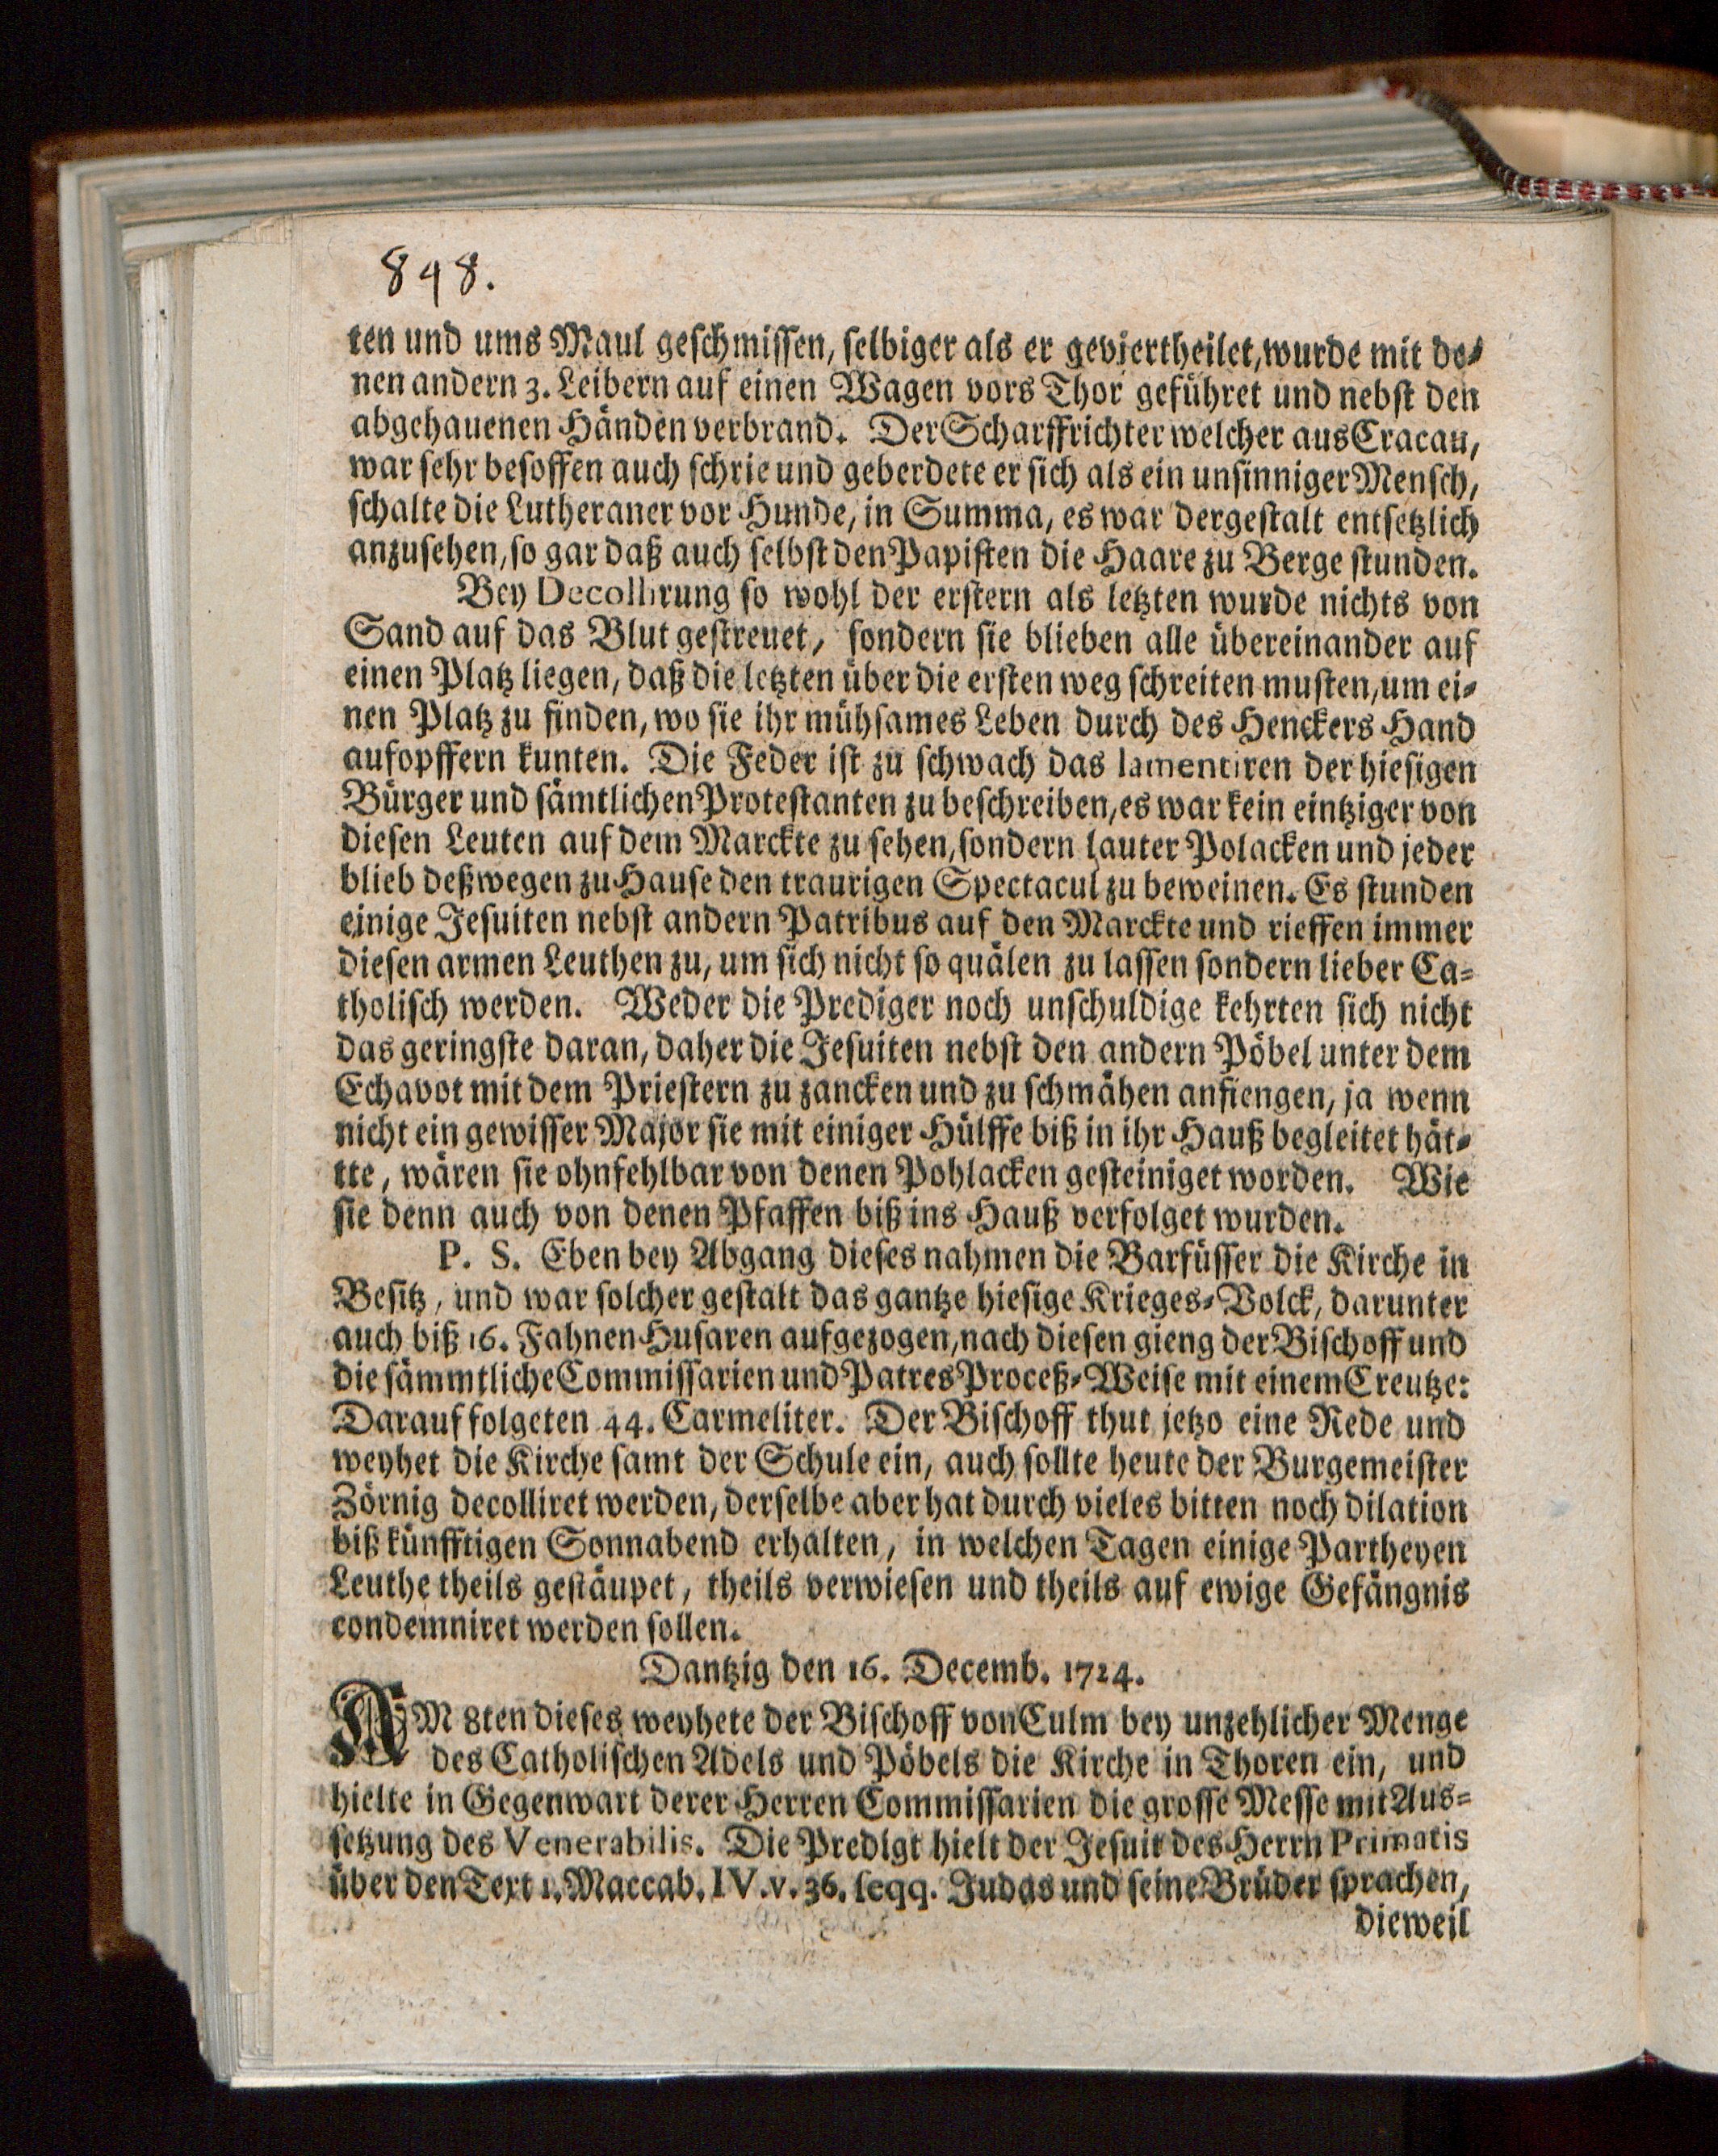 848.
ten und ums Maul geschmissen, selbiger als er geviertheilet, wurde mit de-
nen andern 3. Leibern auf einen Wagen vors Thor geführet und nebst den
abgehauenen Händen verbrand. Der Scharffrichter welcher aus Cracau,
war sehr besoffen auch schrie und geberdete er sich als ein unsinniger Mensch,
schalte die Lutheraner vor Hunde, in Summa, es war dergestalt entsetzlich
anzusehen, so gar daß auch selbst den Papisten die Haare zu Berge stunden.
Bey Decollirung so wohl der erstern als letzten wurde nichts von
Sand auf das Blut gestreuet, sondern sie blieben alle übereinander auf
einen Platz liegen, daß die letzten über die ersten weg schreiten musten, um ei-
nen Platz zu finden, wo sie ihr mühsames Leben durch des Henckers Hand
aufopffern kunten. Die Feder ist zu schwach das lamentiren der hiesigen
Bürger und sämtlichen Protestanten zu beschreiben, es war kein eintziger von
diesen Leuten auf dem Marckte zu sehen, sondern lauter Polacken und jeder
blieb deßwegen zu Hause den traurigen Spectacul zu beweinen. Es stunden
einige Jesuiten nebst andern Patribus auf den Marckte und rieffen immer
diesen armen Leuthen zu, um sich nicht so quälen zu lassen sondern lieber Ca-
tholisch werden. Weder die Prediger noch unschuldige kehrten sich nicht
das geringste daran, daher die Jesuiten nebst den andern Pöbel unter dem
Echavot mit dem Priestern zu zancken und zu schmähen anfiengen, ja wenn
nicht ein gewisser Major sie mit einiger Hülffe biß in ihr Hauß begleitet hät-
tte, wären sie ohnfehlbar von denen Pohlacken gesteiniget worden. Wie
sie denn auch von denen Pfaffen biß ins Hauß verfolget wurden.
P. S. Eben bey Abgang dieses nahmen die Barfüsser die Kirche in
Besitz, und war solcher gestalt das gantze hiesige Krieges-Volck, darunter
auch biß 16. Fahnen Husaren aufgezogen, nach diesen gieng der Bischoff und
die sämmtliche Commissarien und Patres Proceß-Weise mit einem Creutze:
Darauf folgeten 44. Carmeliter. Der Bischoff thut jetzo eine Rede und
weyhet die Kirche samt der Schule ein, auch sollte heute der Burgemeister
Zörnig decolliret werden, derselbe aber hat durch vieles bitten noch dilation
biß künfftigen Sonnabend erhalten, in welchen Tagen einige Partheyen
Leuthe theils gestäupet, theils verwiesen und theils auf ewige Gefängnis
condemniret werden sollen.
Dantzig den 16. Decemb. 1724.
AM 8ten dieses weyhete der Bischoff von Culm bey unzehlicher Menge
des Catholischen Adels und Pöbels die Kirche in Thoren ein, und
hielte in Gegenwart derer Herren Commissarien die grosse Messe mit Aus-
setzung des Venerabilis. Die Predigt hielt der Jesuit des Herrn Primatis
über den Text 1. Maccab. IV. v. 36. seqq. Judas und seine Brüder sprachen,
dieweil